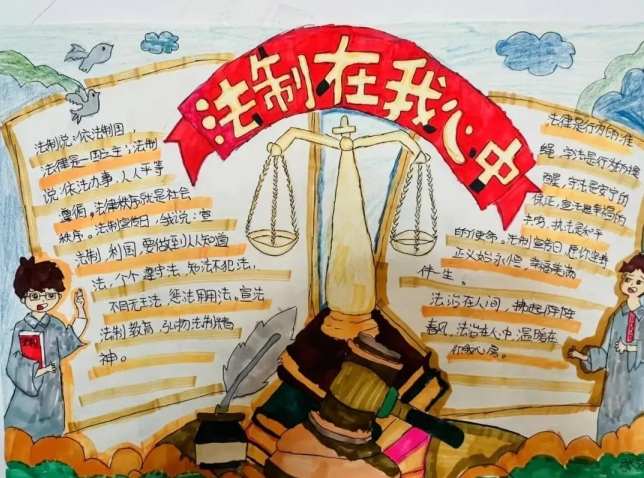 法制在我心中
法制说：依法制国，
法律是一国之主；法制
说：依法办事，人人平等
要俱。法律秩序就是社会
秩序。法制宣传日，我说：宣
法制，利国，要做到人人知道
法，个个遵守法，知法不犯法，
不目无王法，惩法用用法。宣法
法制教育，弘扬法制精
神。
法律是行为的准
绳，学法是行为的
守法是安宁的
保证，宣法是幸福的
执法是和平
的使命。法制宣传日，愿你坐拥
正义的永恒，幸福美满
伴一生。
法治在人间，拂起阵阵
春风，法治在人心中，温暖在
你我心房。
法制